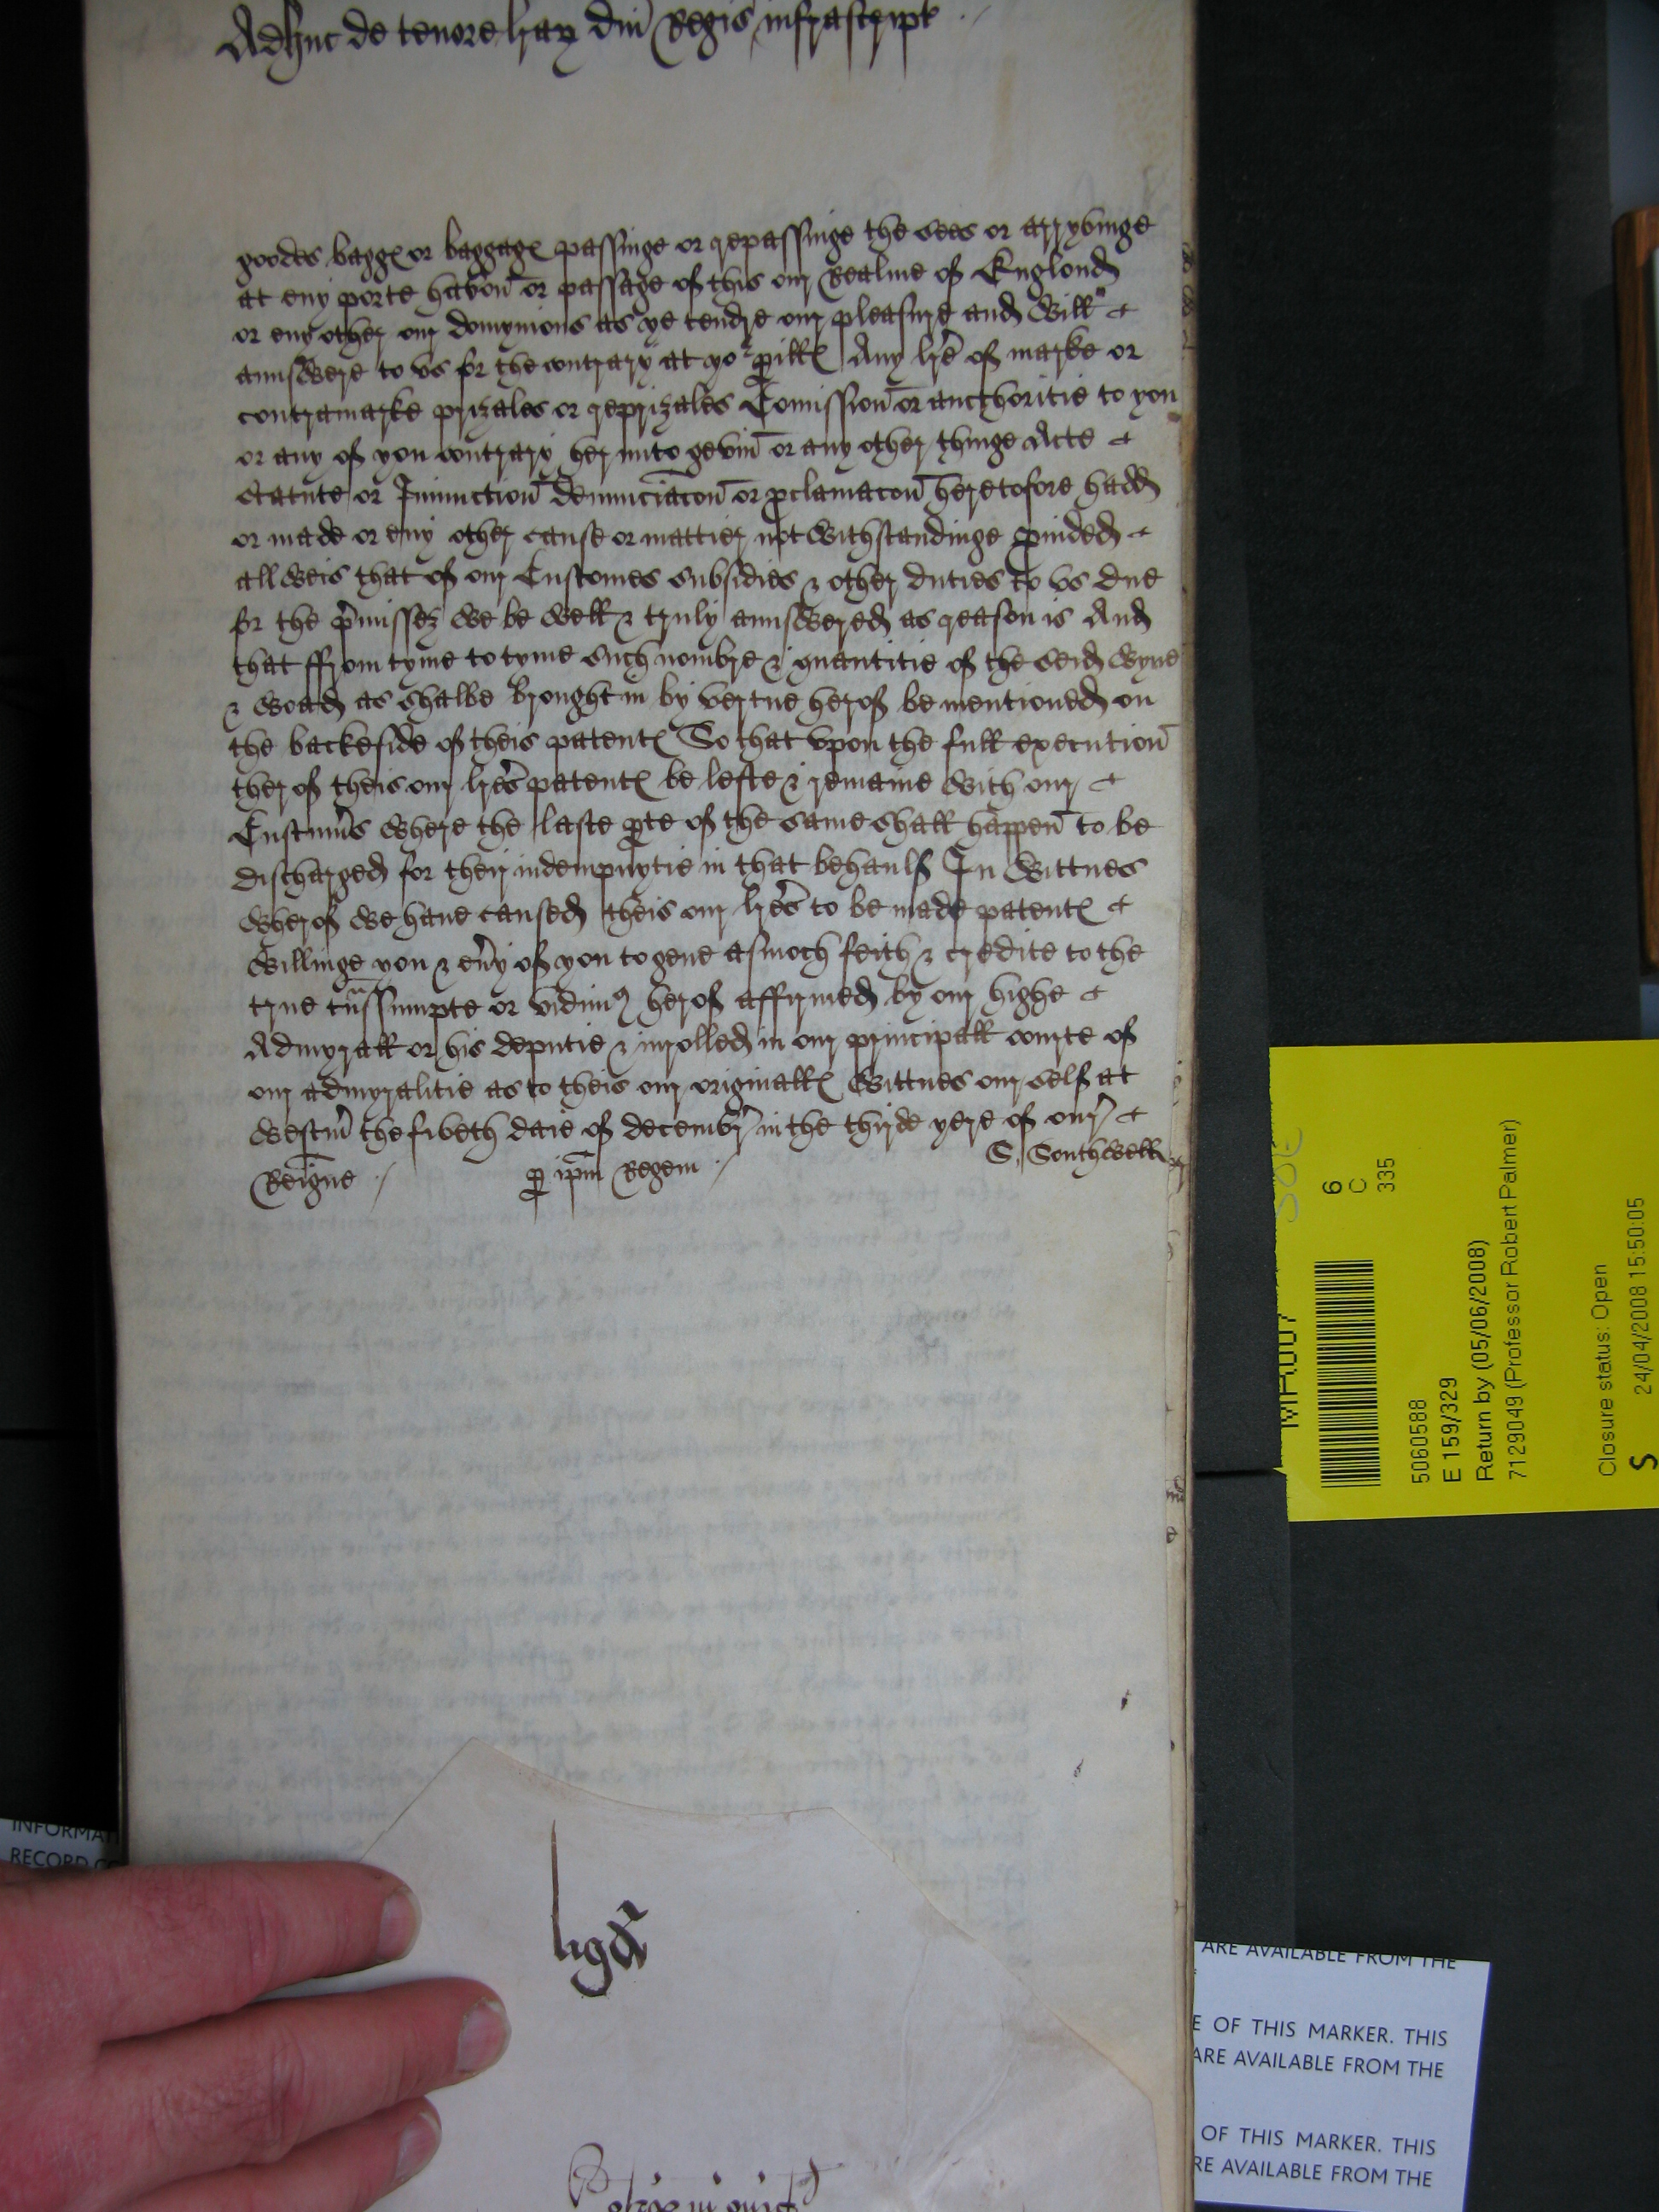 Adhuc de tenore lrarz dni Regis infrascript
goodes bagge or baggage passinge or repassinge the sees or arryvinge
at eny porte havon or passage of this our Realme of Englond
or eny other our domynions as ye tendre our pleasure and will &
aunswere to us for the contrary at yor perill Any lre of marke or
contramarke prizales or reprizales Comission or aucthoritie to you
or any of you contrary herunto gevin or any other thinge Acte &
Statute or Iniunction denunciacon or proclamacon heretofore hadd
or made or eny other cause or mattier not withstandinge provided &
allweis that of our Customes Subsidies & other duties to us due
for the premissez we be well & truly aunswered as reason is And
that ffrom tyme to tyme such nombre & quantitie of the seid wyne
& woad as shalbe brought in by vertue herof be mentioned on
the backeside of theis patente So that upon the full execution
therof theis our lres patente be lefte & remaine with our &
Custumrs where the laste parte of the same shall happen to be
discharged for their indempnytie in that behaulf In wittnes
wherof we have caused theis our lres to be made patente &
willinge you & evry of you to geve asmoch feith & credite to the
true transsumpte or vidimus herof affirmed by our highe &
Admyrall or his deputie & inrolled in our principall courte of
our admyralitie as to theis our originalle Wittnes our self at
Westm the fiveth daie of decembr in the thirde yere of our &
Reigne per ipm Regem S. Southwell
MR007
6
C
335
5060588
E 159/329
Return by (05/06/2008)
7129049 (Professor Robert Palmer)
Closure status: Open
S 24/04/2008 15:50:05
INFORMAT
RECORD CO
ARE AVAILABLE FROM THE
E OF THIS MARKER. THIS
ARE AVAILABLE FROM THE
OF THIS MARKER. THIS
RE AVAILABLE FROM THE